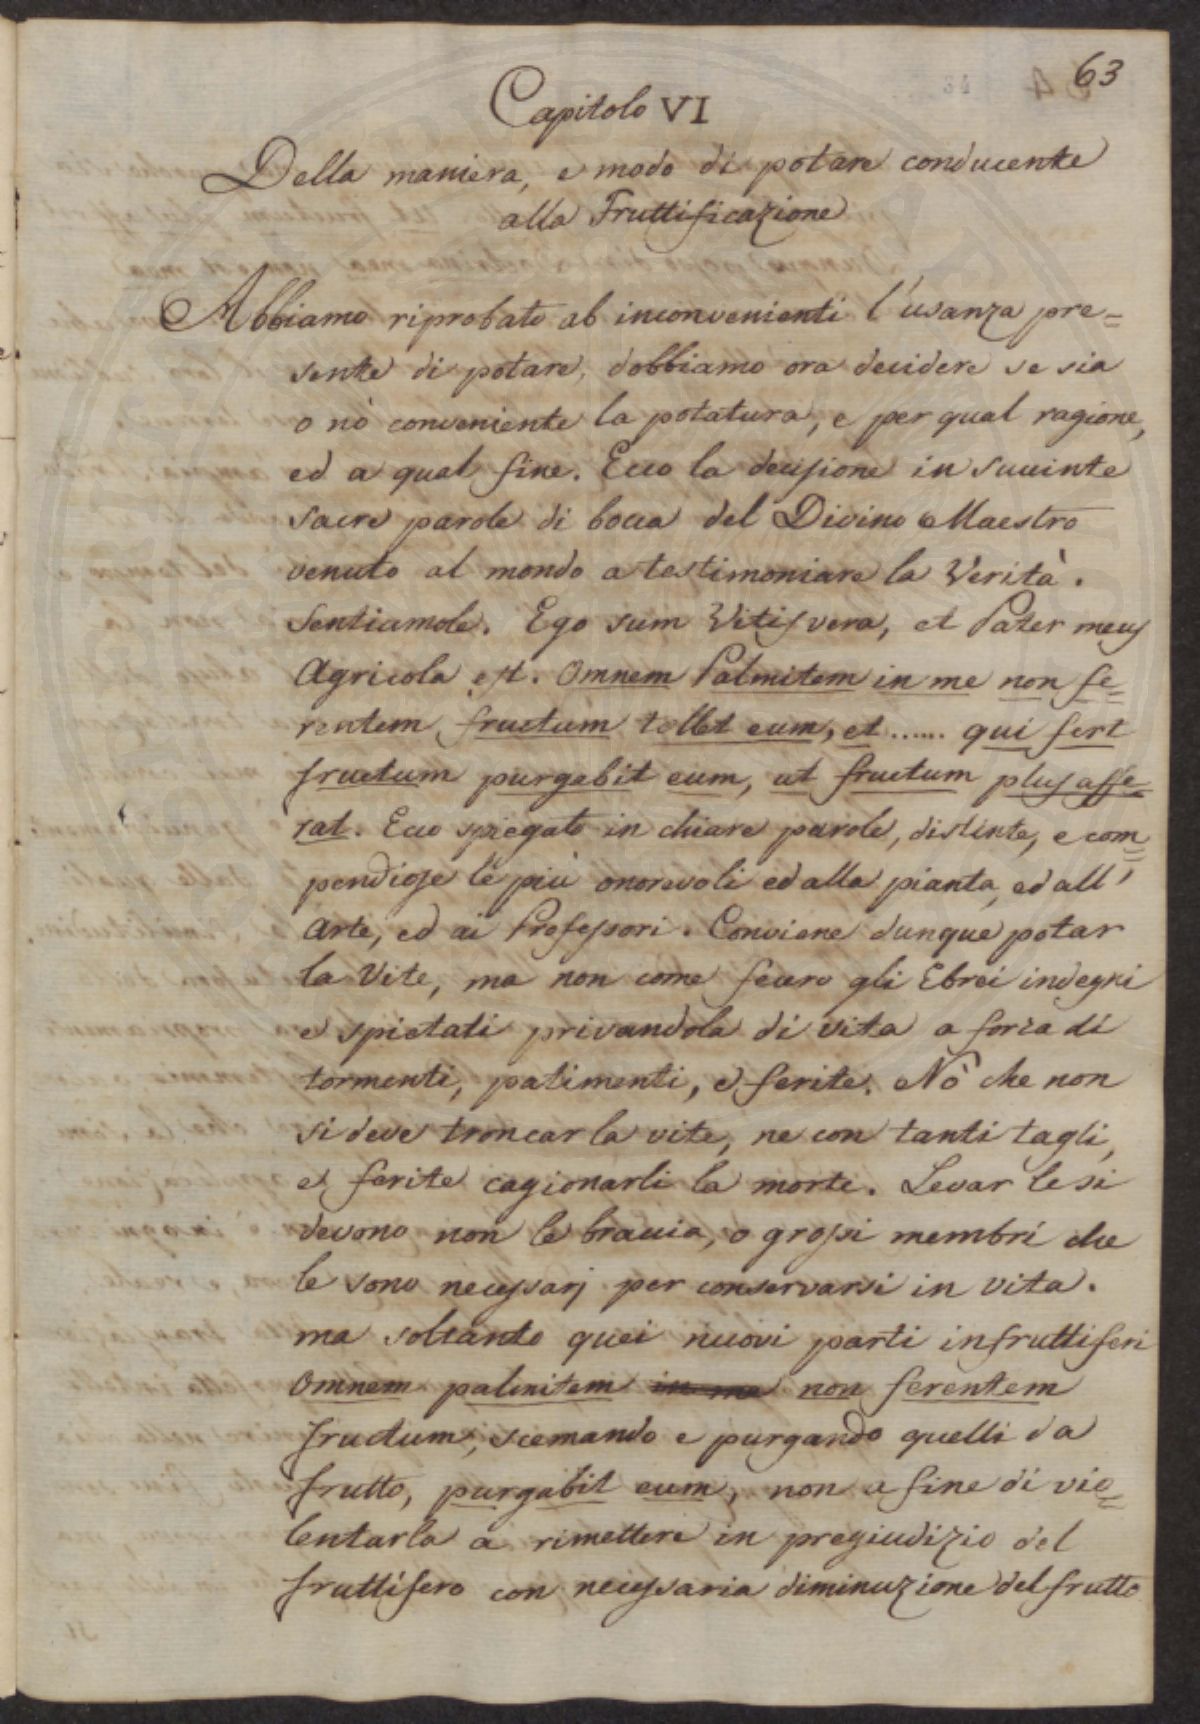 63
Capitolo VI
Della maniera, e modo di potare conducente
alla Fruttificazione
Abbiamo riprobato ab inconvenienti l'usanza pre=
sente di potare, dobbiamo ora decidere se sia
o nò conveniente la potatura, e per qual ragione,
ed a qual fine. Ecco la decisione in succinte
sacre parole di bocca del Divino Maestro
venuto al mondo a testimoniare la Verità.
Sentiamole. Ego sum Vitis vera, et Pater meus
Agricola est. Omnem Palmitem in me non fe=
rentem fructum tollet eum, et ...... qui fert
fructum purgabit eum, ut fructum plus affe=
rat. Ecco spiegato in chiare parole, distinte, e com=
pendiose le più onorevoli ed alla pianta, ed all'
Arte, ed ai Professori. Conviene dunque potar
la Vite, ma non come fecero gli Ebrei indegni
e spietati privandola di vita a forza di
tormenti, patimenti, e ferite. Nò che non
si deve troncar la vite, ne con tanti tagli,
e ferite cagionarli la morte. Levar le si
devono non le braccia, o grossi membri che
le sono necessarj per conservarsi in vita.
ma soltanto quei nuovi parti infruttiferi
Omnem palmitem in me non ferentem
fructum, scemando e purgando quelli da
frutto, purgabit eum, non a fine di vio=
lentarla a rimettere in pregiudizio del
fruttifero con necessaria diminuzione del frutto